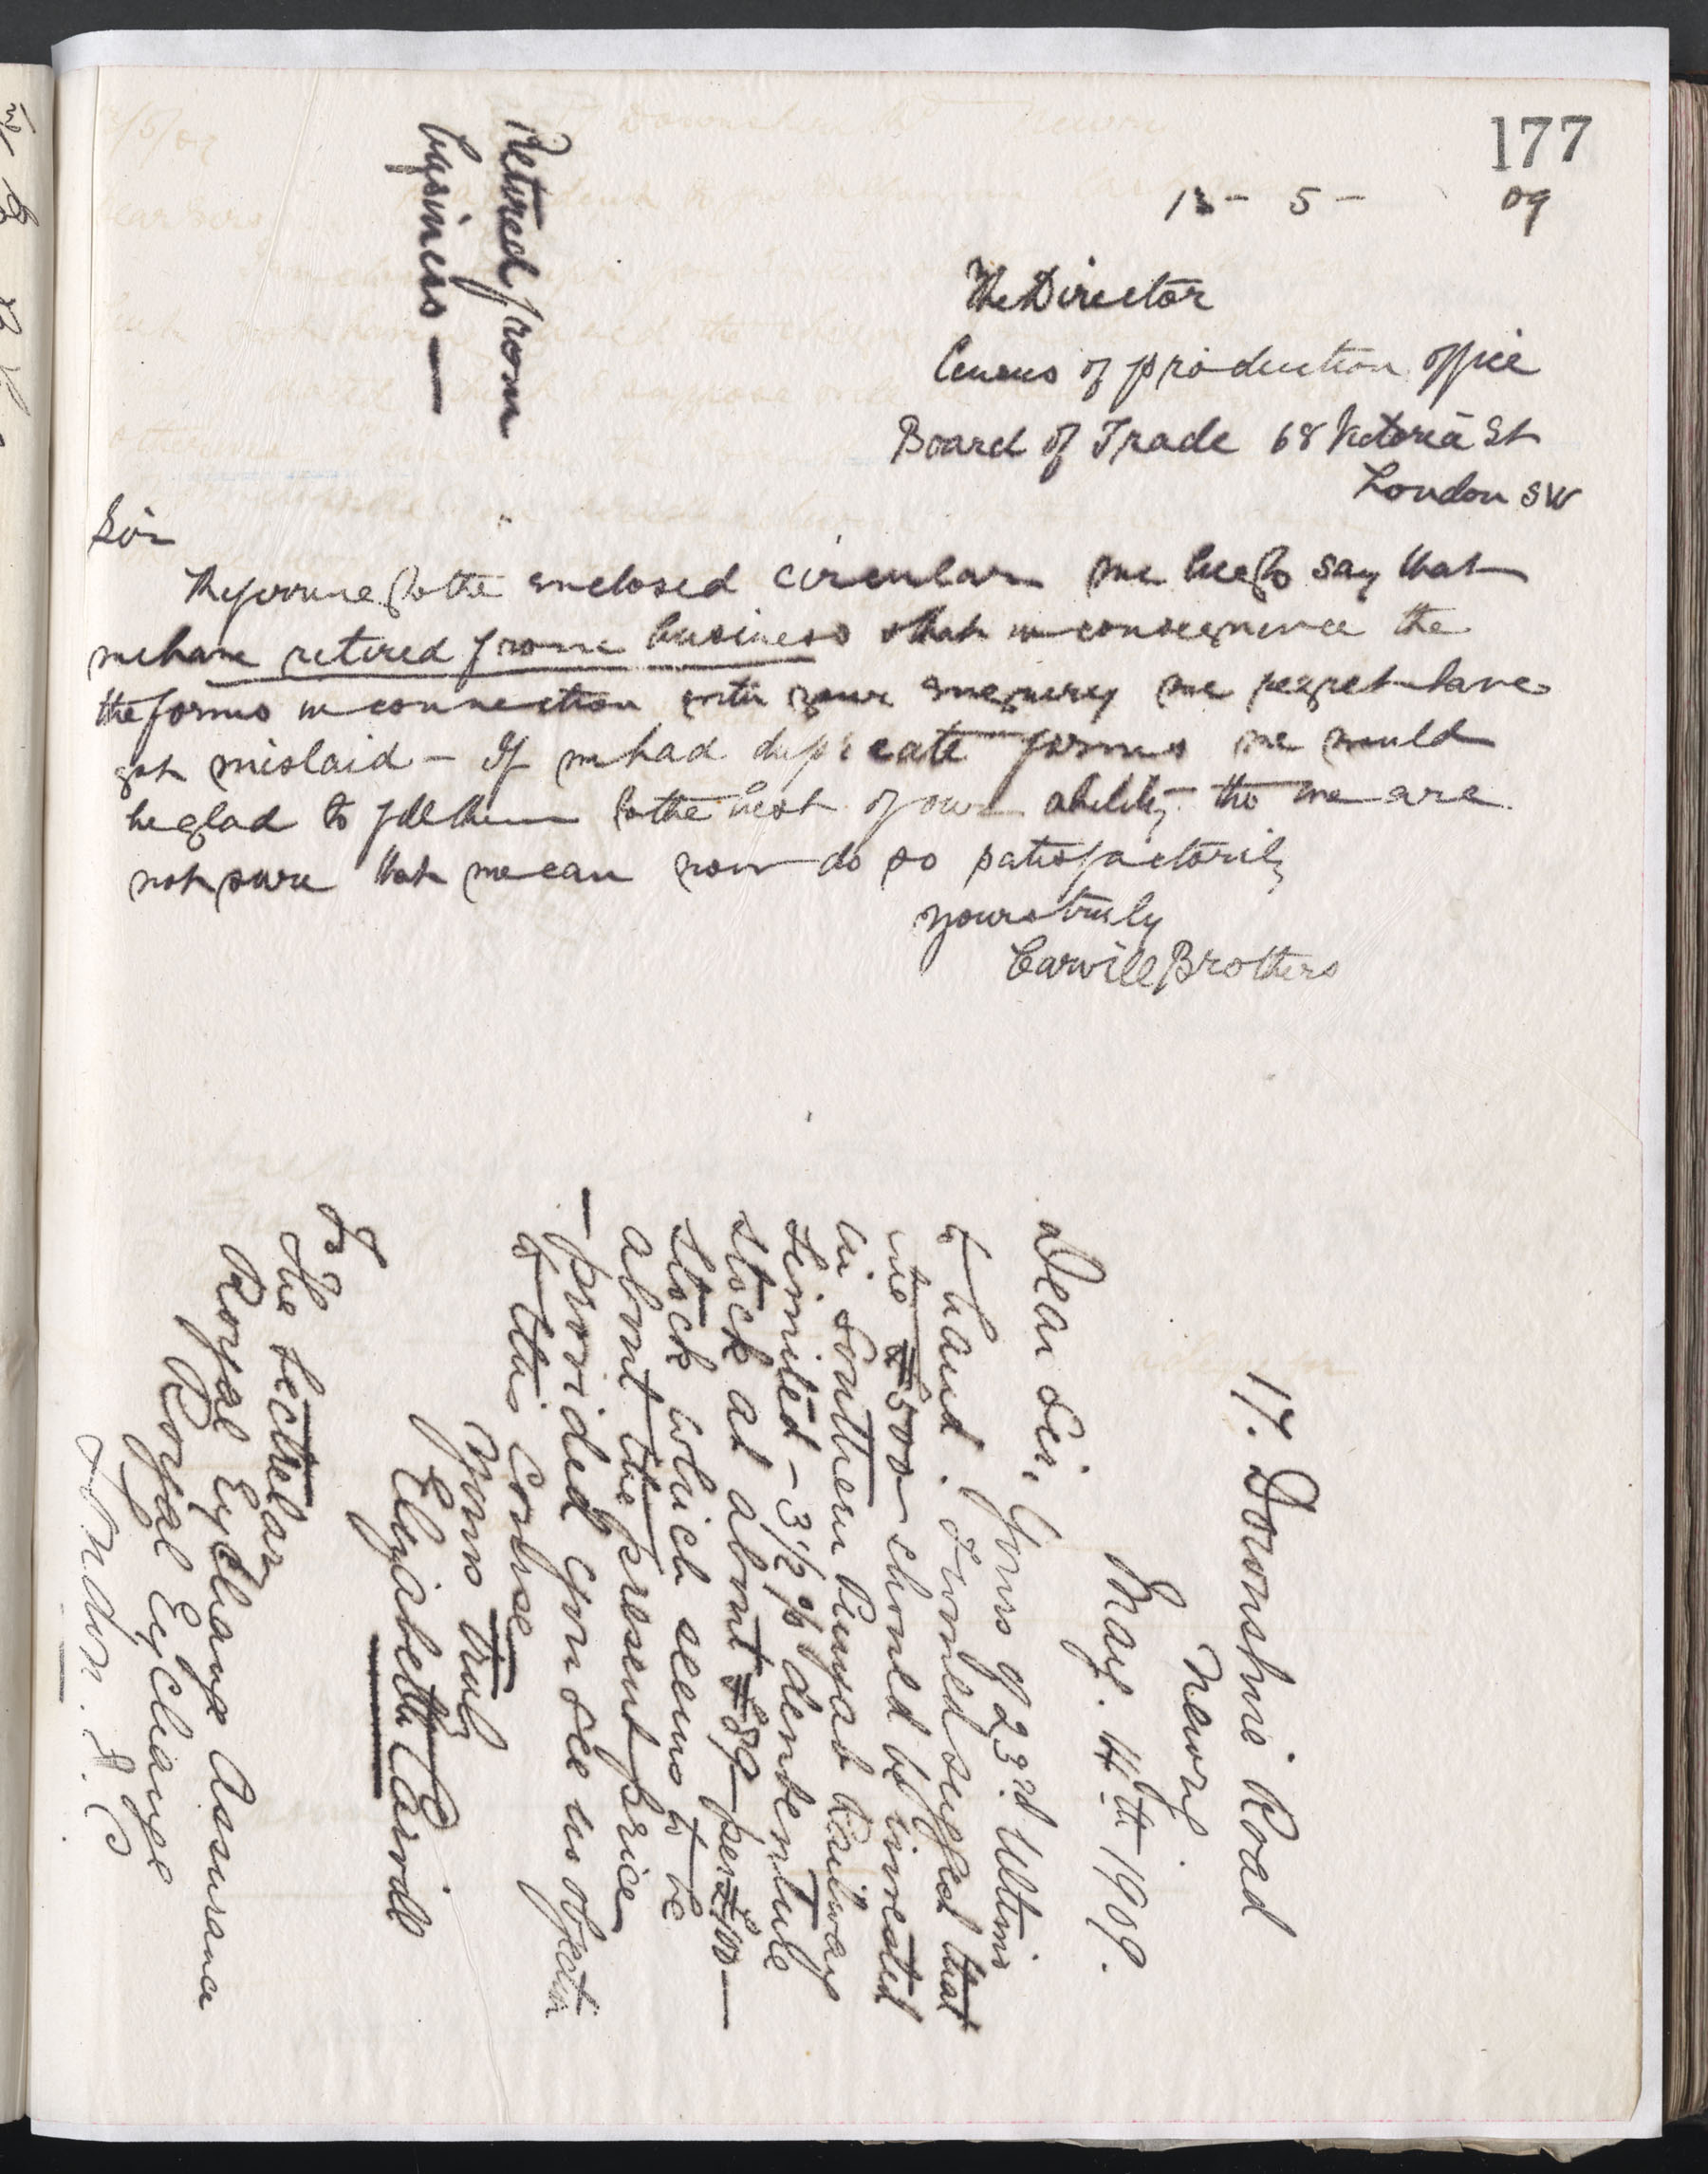 177
- 5 - 09
Retired from
business —
The Director
Census of production office
Board of Trade 68 Victoria St
London SW
Sir
Referring to the enclosed circular we beg to say that
we have retired from business & that in consequence the
the forms in connection with your enquiry we regret have
got mislaid - If we had duplicate forms we would
be glad to fill them to the best of our ability tho we are
not sure that we can now do so satisfactorily
yours truly
Carvill Brothers
17. Downshire Road
Newry
May. 4th 1909.
Dear Sir,
Yours of 23rd Ultimo
to hand. I would suggest that
the £500 should be invested
in Southern Punjab Railway
Limited - 3½% debenture
stock at about £89 per £100 —
stock which seems to be
about the present price
— provided you see no objection
to this Course
Yours truly
Elizabeth Carvill
To
The Secretary
Royal Exchange Assurance
Royal Exchange
London. E.C